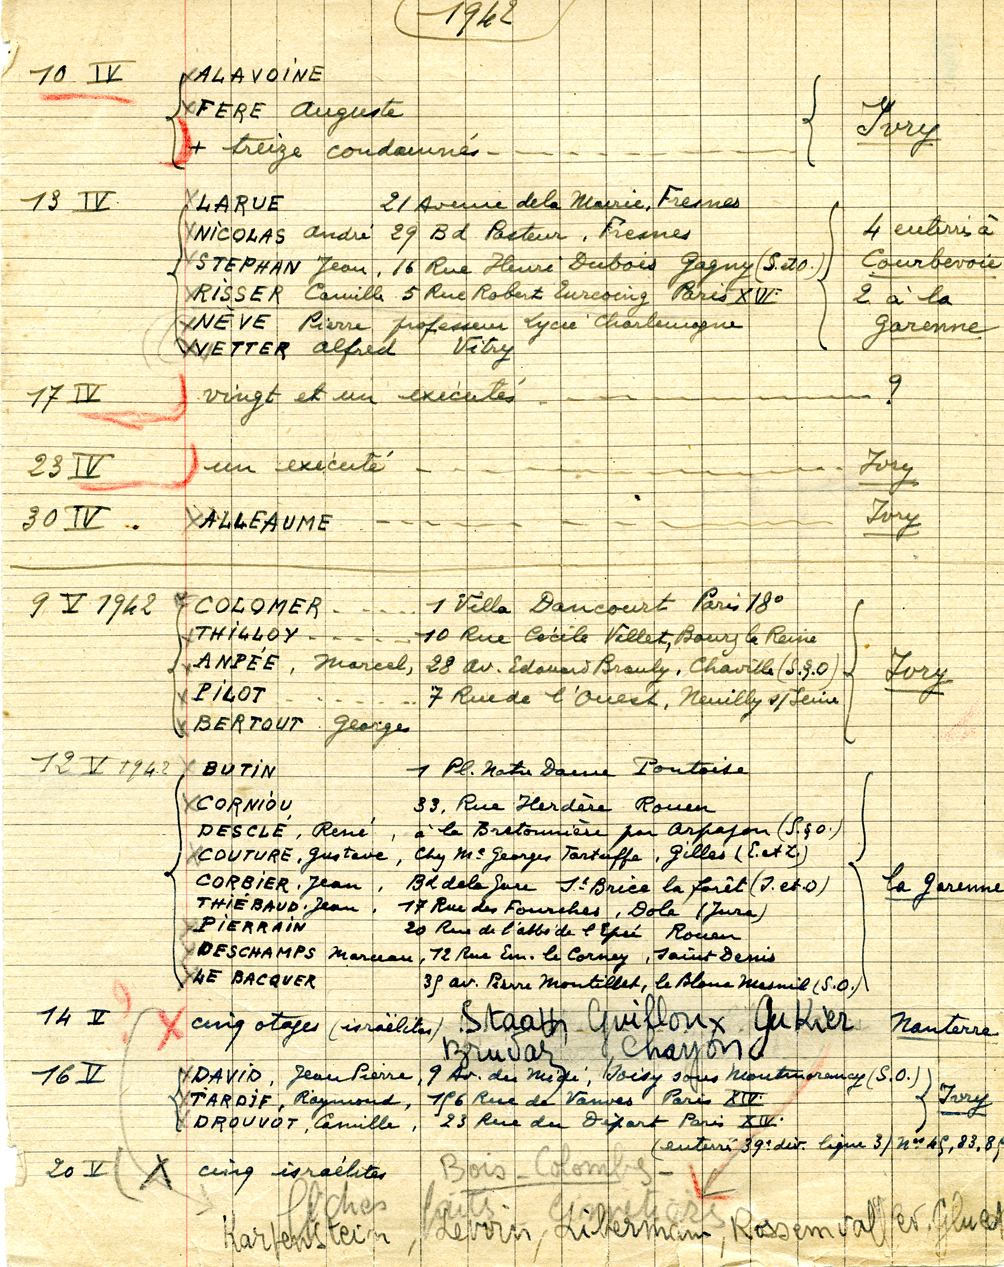 1942
10 IV ALAVOINE
FERE Auguste Ivry
+ treize condamnés
13 IV LARUE 21 Avenue de la Mairie, Fresnes
NICOLAS André 29 Bd Pasteur, Fresnes 4 enterrés à
STEPHAN Jean, 16 Rue Henri Dubois Gagny (S. et O.) Courbevoie
RISSER Camille 5 Rue Robert Turcoing Paris XV 2 à la
NÈVE Pierre professeur Lycée Charlemagne Garenne
VETTER Alfred Vitry
17 IV vingt et un exécutés ?
23 IV un exécuté Ivry
30 IV ALLEAUME Ivry
9 V 1942 COLOMER 1 Villa Dancourt Paris 18°
THILLOY 10 Rue Cécile Vallet, Bourg la Reine
ANPÉE, Marcel, 28 av. Edouard Branly, Chaville (S.&O) Ivry
PILOT 7 Rue de l'Ouest, Neuilly s/Seine
BERTOUT Georges
12 V 1942 BUTIN 1 Pl. Notre Dame Pontoise
CORNIOU 33, Rue Herdère Rouen
DESCLÉ, René, à la Bretonnière par Arpajon (S.&O.)
COUTURE, Gustave, Chez Mr Georges Tartuffe, Gilles (E. et L)
CORBIER, Jean, Bd de la Gare St Brice la forêt (S. et O) la Garenne
THIÉBAUD, Jean, 17 Rue des Fourches, Dole (Jura)
PIERRAIN 20 Rue de l'abbé de l'Epée Rouen
DESCHAMPS Marceau, 12 Rue Em. le Corney, Saint Denis
LE BACQUER 35 av. Pierre Montillet, le Blanc Mesnil (S.O.)
?
14 V X cinq otages (israélites) Staath Guilloux Gukier Nanterre
Brudaz, Chayon
16 V DAVID, Jean Pierre, 9 Av. du Midi, Soisy sous Montmorency (S.O.)
TARDIF, Raymond, 156 Rue de Vanves Paris XIV Ivry
DROUVOT, Camille, 23 Rue du Départ Paris XIV
(enterré 39e div. ligne 3) Nos 45, 83, 85
20 V X cinq israélites Bois-Colombes
fiches faits cimetières
Karpenstein, Levoin, Liberman, Rossemval